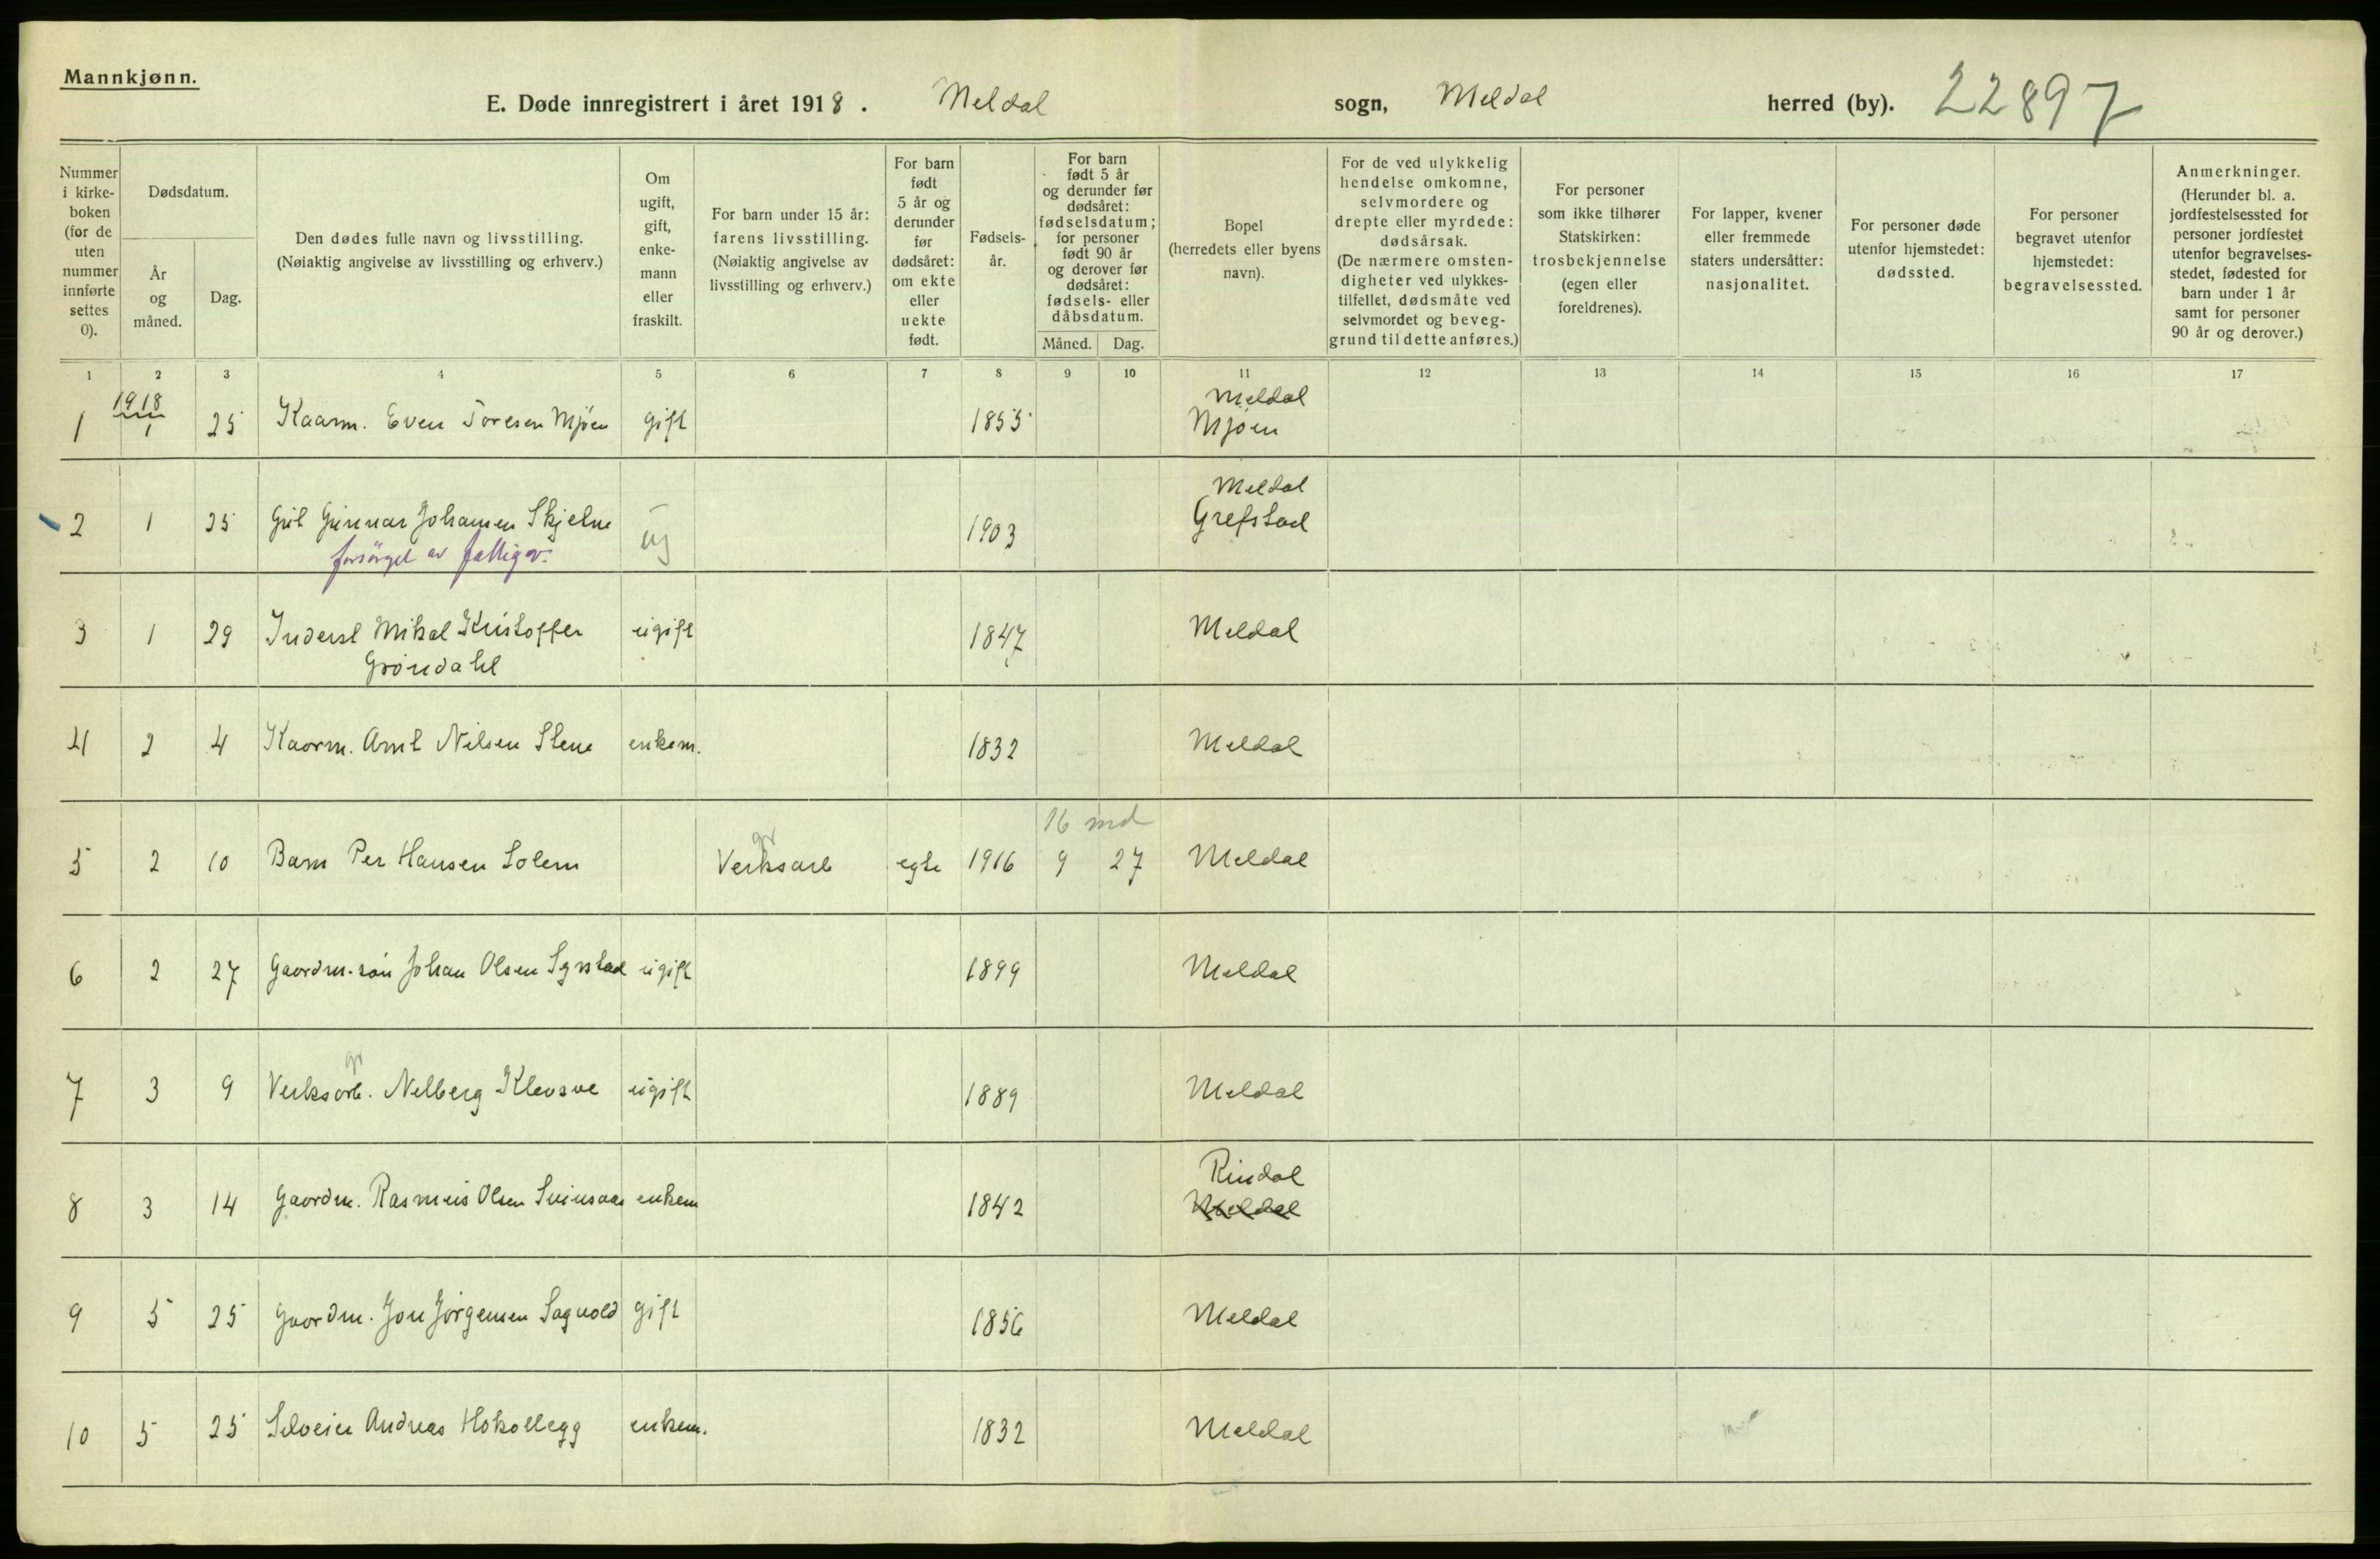 Mannkjønn.
E. Døde innregistrert i året 1918. Meldal sogn, Meldal herred (by). 22897
Nummer i kirkeboken (for de uten nummer innførte settes 0).
Dødsdatum.
År og måned.
Dag.
Den dødes fulle navn og livsstilling. (Nøiaktig angivelse av livsstilling og erhverv.)
Om ugift, gift, enkemann eller fraskilt.
For barn under 15 år: farens livsstilling. (Nøiaktig angivelse av livsstilling og erhverv.)
For barn født 5 år og derunder før dødsåret: om ekte eller uekte født.
Fødselsår.
For barn født 5 år og derunder før dødsåret: fødselsdatum; for personer født 90 år og derover før dødsåret: fødsels- eller dåbsdatum.
Måned.
Dag.
Bopel (herredets eller byens navn).
For de ved ulykkelig hendelse omkomne, selvmordere og drepte eller myrdede: dødsårsak. (De nærmere omstendigheter ved ulykkestilfellet, dødsmåte ved selvmordet og beveggrund til dette anføres.)
For personer som ikke tilhører Statskirken: trosbekjennelse (egen eller foreldrenes).
For lapper, kvener eller fremmede staters undersåtter: nasjonalitet.
For personer døde utenfor hjemstedet: dødssted.
For personer begravet utenfor hjemstedet: begravelsessted.
Anmerkninger. (Herunder bl. a. jordfestelsessted for personer jordfestet utenfor begravelsesstedet, fødested for barn under 1 år samt for personer 90 år og derover.)
1 2 3 4 5 6 7 8 9 10 11 12 13 14 15 16 17
1918 Meldal
1 1 25 Kaarm. Even Toresen Mjøen gift 1855 Mjøen
Meldal
2 1 25 Gut Gunnar Johansen Skjelne ug 1903 Grefstad
forsörget av fattigv.
3 1 29 Inderst Mikal Kristoffer ugift 1847 Meldal
Gröndahl
4 2 4 Kaarm. Arnt Nilsen Stene enkem. 1832 Meldal
gr 16 md
5 2 10 Barn Per Hansen Solem Verksarb egte 1916 9 27 Meldal
6 2 27 Gaardm.sön Johan Olsen Syrstad ugift 1899 Meldal
gr
7 3 9 Verksarb. Nelberg Klevsve ugift 1889 Meldal
Rindal
8 3 14 Gaardm. Rasmus Olsen Svinsaas enkem 1842 Meldal
9 5 25 Gaardm. Jon Jörgensen Sagvold gift 1856 Meldal
10 5 25 Selveier Andreas Hokollegg enkem. 1832 Meldal